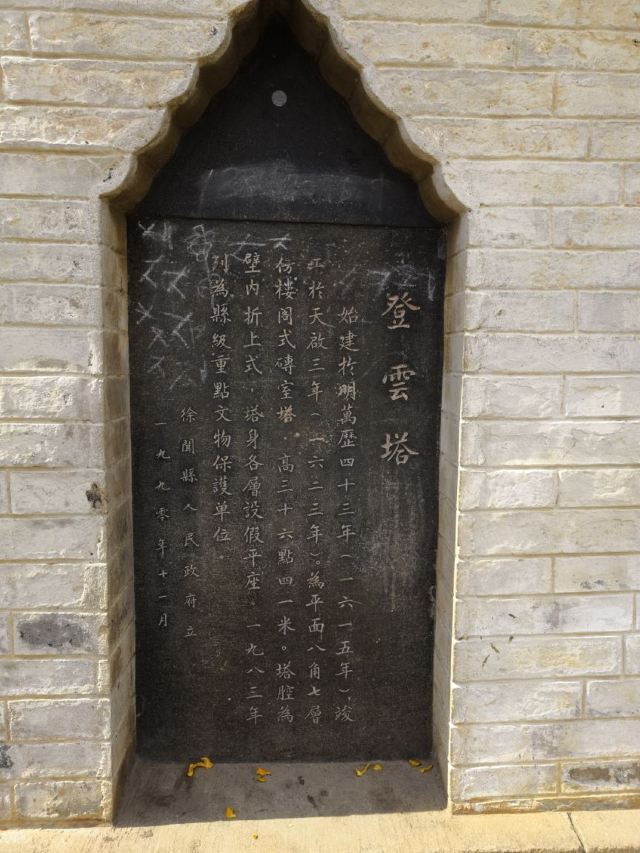 登雲塔
始建於明萬歷四十三年（一六一五年），竣
工於天啟三年（一六二三年）。為平面八角七層
仿樓阁式磚室塔．高三十六點四一米。塔腔為
壁内折上式．塔身各層設假平座．一九八三年
列為縣級重點文物保護單位．
徐聞縣人民政府立
一九九零年十二月